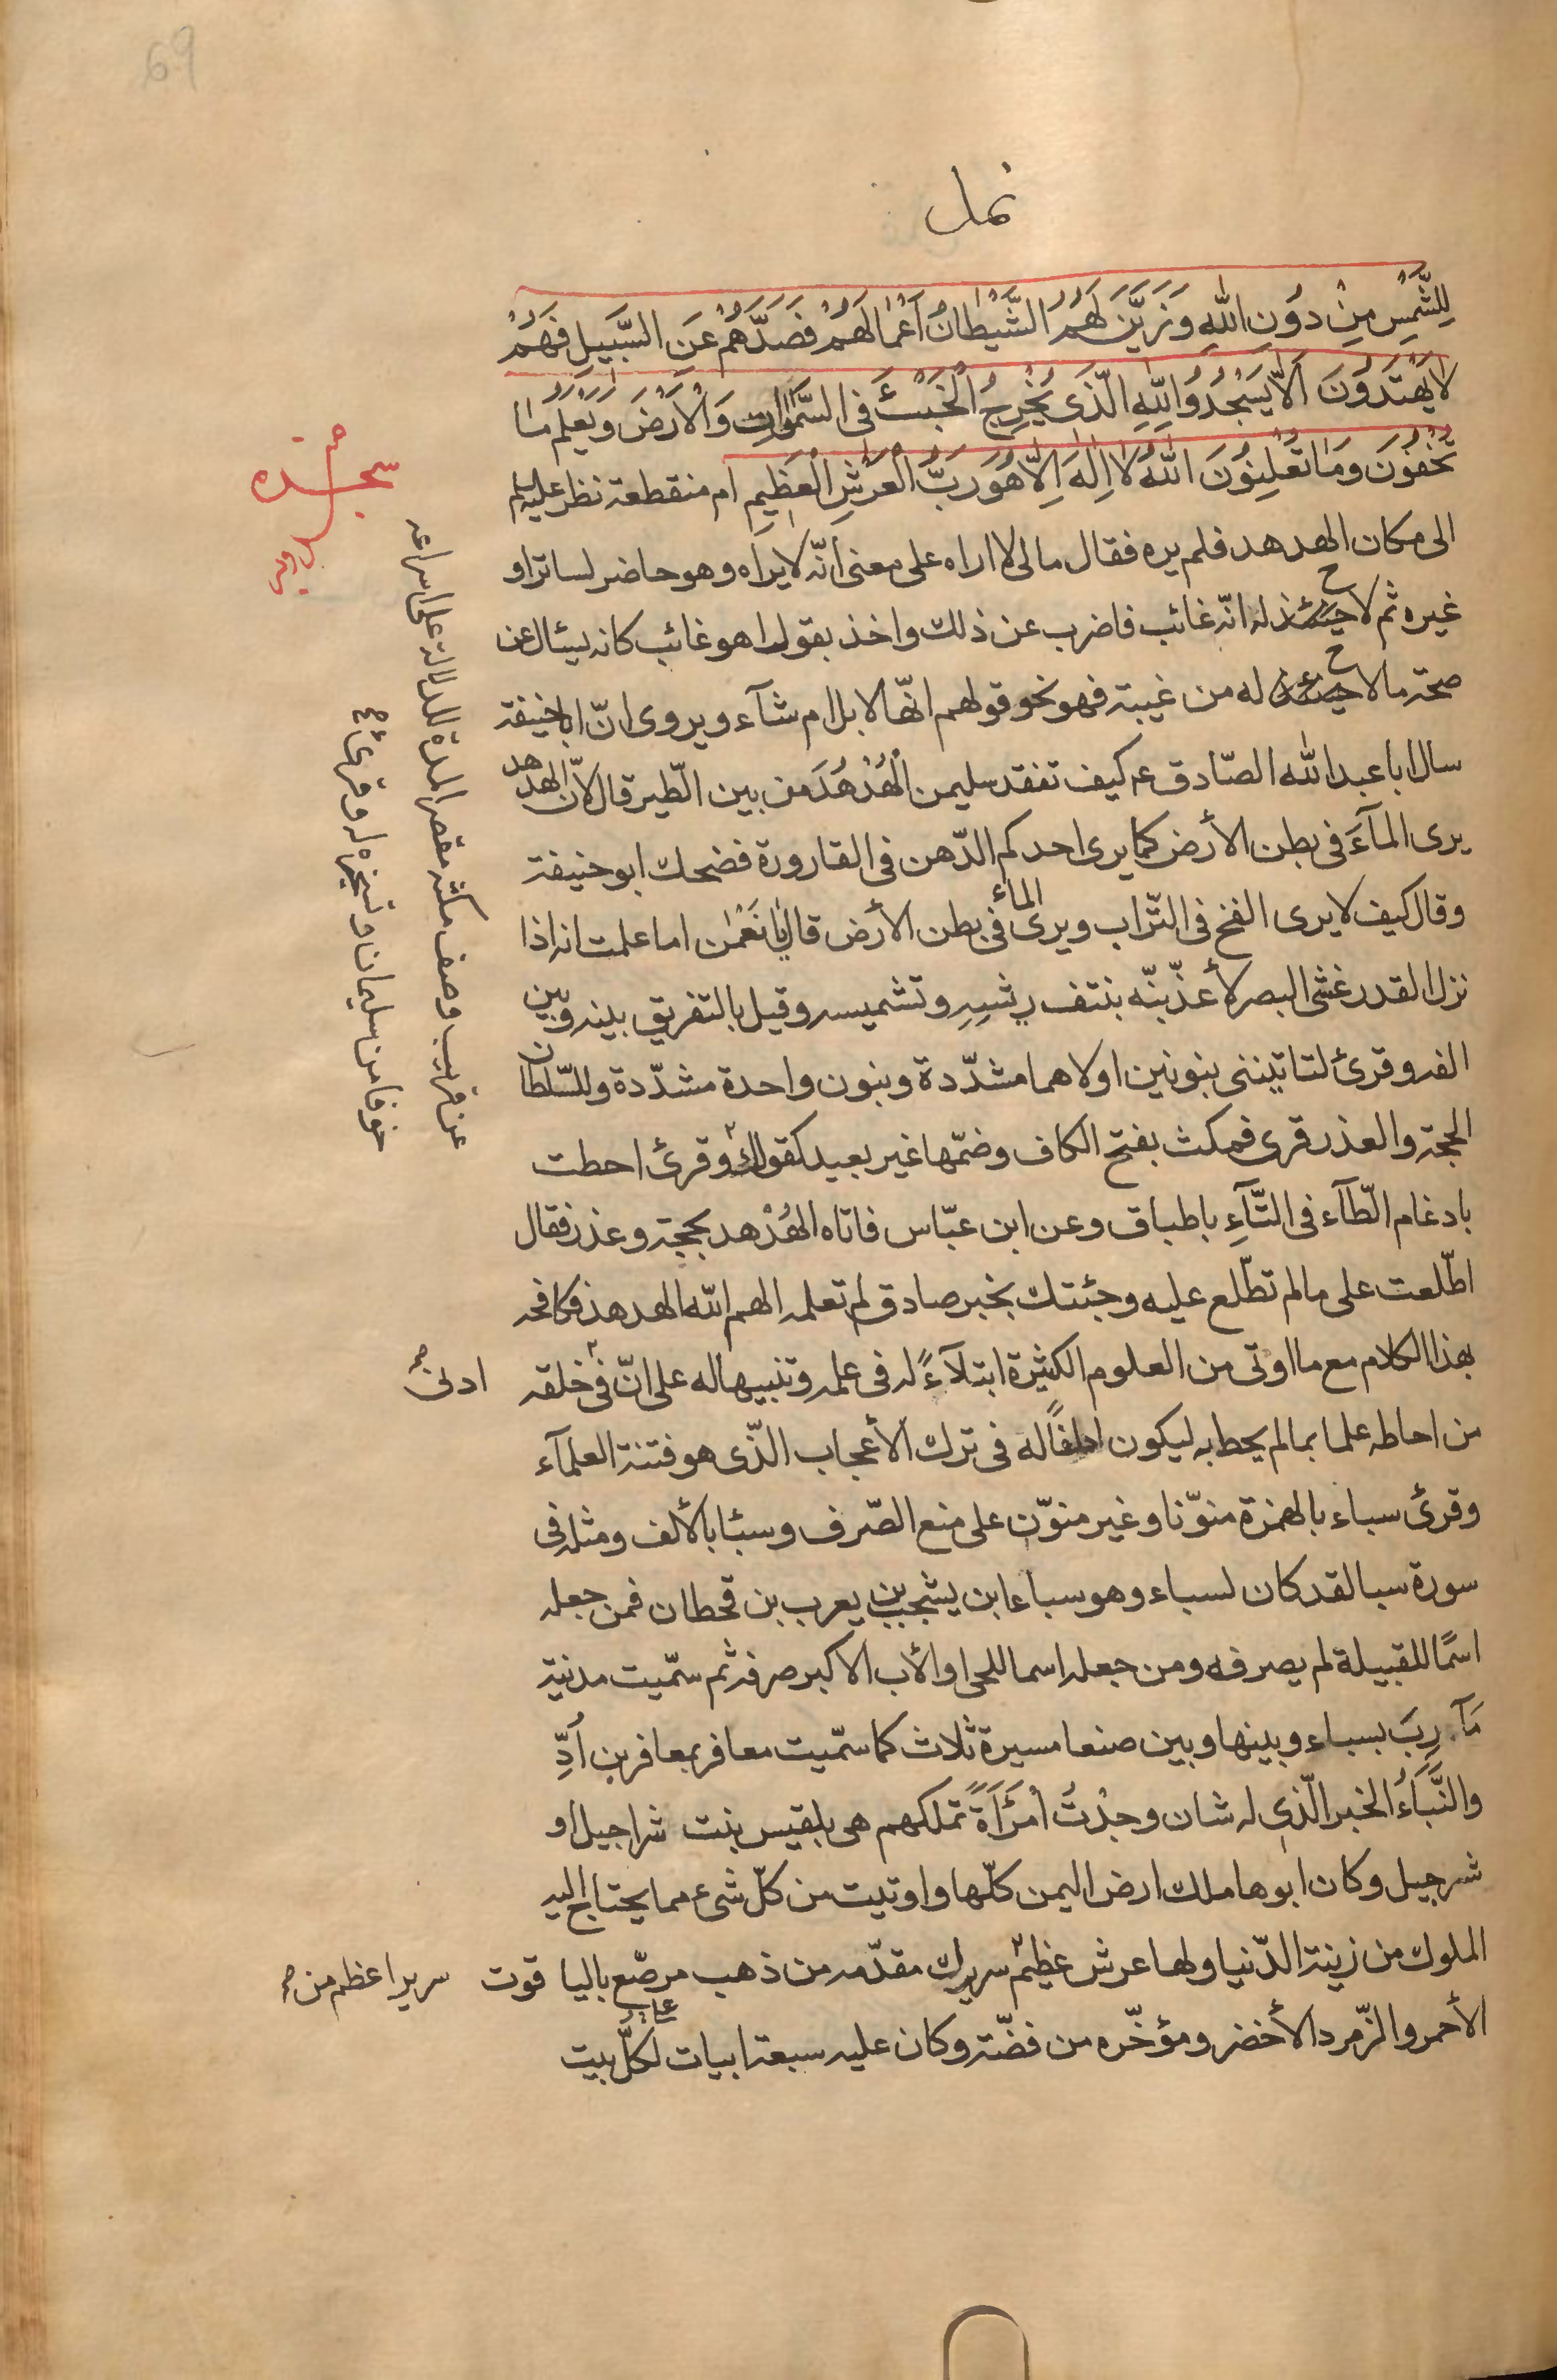 69
نمل
لِلشَّمْسِ مِنْ دُونِ اللهِ وَزَيَّنَ لَهُمُ الشَّيْطَانُ اَعْمَالَهُمْ فَصَدَّهُمْ عَنِ السَّبِيلِ فَهُمْ
لَا يَهْتَدُونَ اَلَّا يَسْجُدُوا لِلّٰهِ الَّذِى يُخْرِجُ الْخَبْئَ فِى السَّمٰوَاتِ وَالْاَرْضِ وَيَعْلَمُ مَا
تُخْفُونَ وَمَا تُعْلِنُونَ اللّٰهُ لَا اِلٰهَ اِلَّا هُوَ رَبُّ الْعَرْشِ الْعَظِيمِ ام منقطعة نظر عليلم
الى مكان الهدهد فلم يره فقال مالى لا اراه على معنى انّه لا يراه وهو حاضر لساتر او
غيره ثم لاح له انّه غائب فاضرب عن ذلك واخذ بقول اهو غائب كانه يسئال عن
صحة ما لاح له من غيبة فهو نحو قولهم انّها لابل ام شآء ويروى انّ ابا حنيفة
سال ابا عبد الله الصّادق ع كيف تفقد سليمن الْهُدْهُدَ من بين الطّير قال لأنّ الهدهد
يرى المآءَ فى بطن الأرض كما يرى احدكم الدّهن فى القارورة فضحك ابو حنيفة
وقال كيف لا يرى الفخ فى التّراب ويرى الماء فى بطن الأرض قال يا نَعْمٰن اما علمت انه اذا
نزل القدر غشى البصر لأعذّبنّه بنتف ريشِهِ وتشميسه وقيل بالتفريق بينه وبين
الفه وقرئ لتاتيننى بنونين اولاهما مشدّدة وبنون واحدة مشدّدة وللسّلطان
الحجة والعذر قرى فمكث بفتح الكاف وضمّها غير بعيد كقولك وقرئ احطت
بادغام الطّآء فى التّآءِ باطباق وعن ابن عبّاس فاتاه الهُدْهد بحجة وعذر فقال
اطّلعت على مالم تطّلع عليه وجئتك بخبر صادق لم تعلمه الهم الله الهدهد فكافحه
بهذا الكلام مع ما اوتى من العلوم الكثيرة ابتلآءً له فى علمه وتنبيها له على انّ فى خلقه
ادنى صح
من احاطه علما بما لم يحط به ليكون لطفًا له فى ترك الأعجاب الّذى هو فتنة العلمآء
وقرئ سباء بالهمزة منوّنا وغير منوّن على منع الصّرف وسبئا بالألف ومثله فى
سورة سبا لقد كان لسباء وهو سباء ابن يشجب بن يعرب بن قحطان فمن جعله
اسمًا للقبيلة لم يصرفه ومن جعله اسما للحى او الأب الاكبر صرفه ثم سمّيت مدينة
مَآرِبَ بسباء وبينها وبين صنعا مسيرة ثلاث كما سمّيت معافر بمعافر بن اُدِّ
والنَّبَاءُ الخبر الّذى له شان وجدْتُ امْرَاَةً تملكهم هى بلقيس بنت شراجيل او
شرجيل وكان ابوها ملك ارض اليمن كلّها واوتيت من كلّ شىء مما يحتاج اليه
الملوك من زينة الدّنيا ولها عرش عظيم سريرك مقدّمه من ذهب مرصّع باليا قوت
سرير اعظم من صح
الأحمر والزّمرد الأخضر ومؤخّره من فضّة وكان عليه سبعة ابيات على كلّ بيت
سجده
عن قريب وصف مكثه بقصر المدة للدلالة على اسراعه
خوفا من سليمان وتسخيره له وقرئ